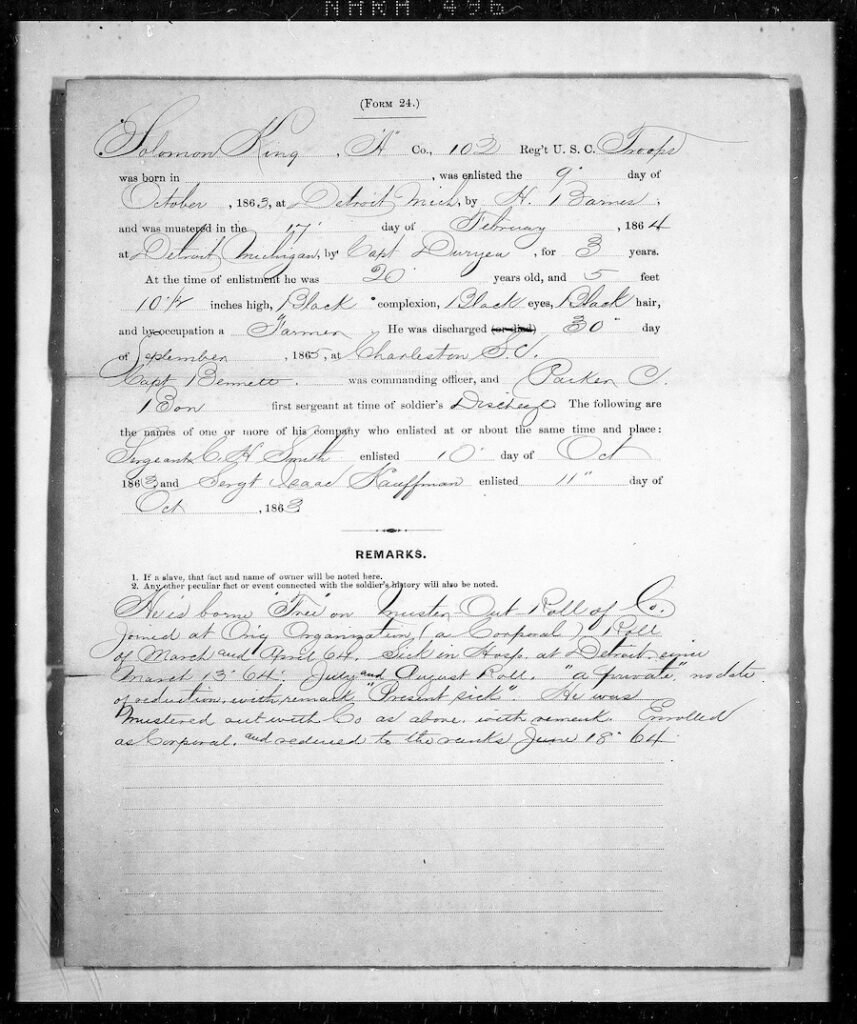 NARA 496
(FORM 24.)
Solomon King, "A" Co., 102 Reg't U. S. C. Troops
was born in , was enlisted the 9" day of
October, 1863, at Detroit Mich, by H. Barnes,
and was mustered in the 17" day of February, 1864
at Detroit Michigan, by Capt Duryea, for 3 years.
At the time of enlistment he was 20 years old, and 5 feet
10 1/2 inches high, Black complexion, Black eyes, Black hair,
and by occupation a Farmer He was discharged (or died) 30" day
of September, 1865, at Charleston S.C.
Capt Bennett. was commanding officer, and Parker C.
Bon first sergeant at time of soldier's Discharge. The following are
the names of one or more of his company who enlisted at or about the same time and place:
Sergeant C. H. Smith enlisted 10" day of Oct
1863 and Sergt Isaac Kauffman enlisted 11" day of
Oct, 1863
REMARKS.
1. If a slave, that fact and name of owner will be noted here.
2. Any other peculiar fact or event connected with the soldier's history will also be noted.
He is borne "Free" on Muster Out Roll of Co.
Joined at Orig Organization, (a Corporal). Roll
of March and April 64. Sick in Hosp. at Detroit since
March 13" 64. July and August Roll. "a private," no date
of reduction, with remark "Present sick". He was
Mustered out with Co as above. with remark. Enrolled
as Corporal. and reduced to the ranks June 18" 64.